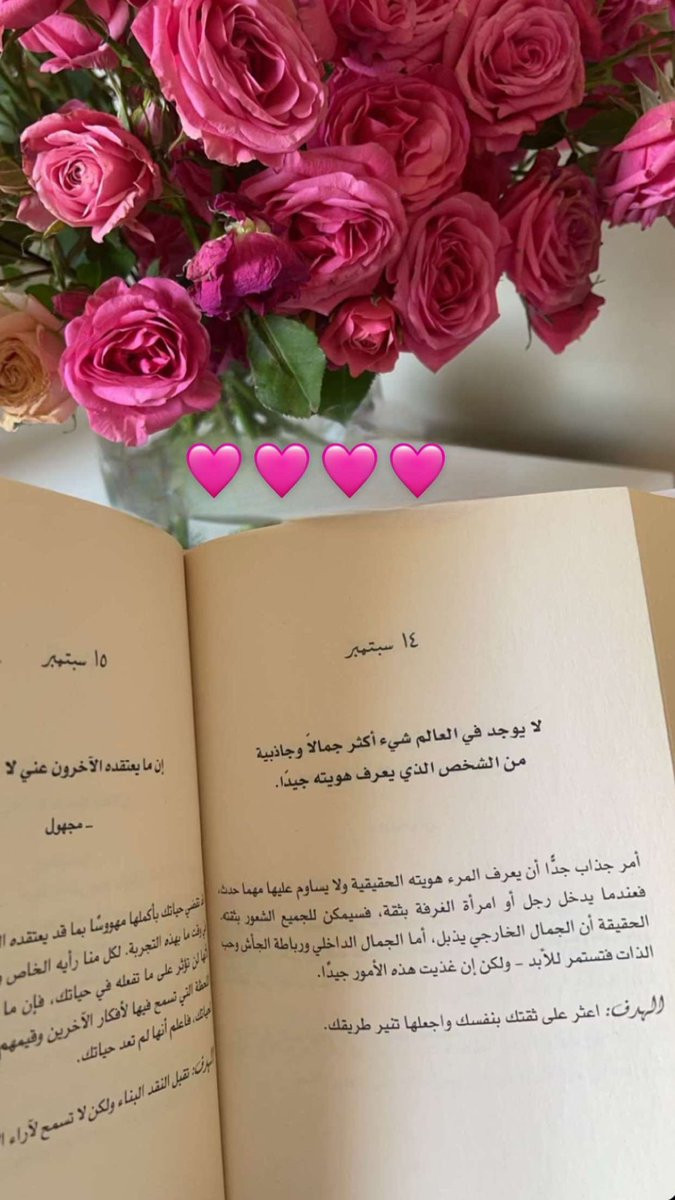 ١٤ سبتمبر
لا يوجد في العالم شيء أكثر جمالاً وجاذبية
من الشخص الذي يعرف هويته جيدًا.
أمر جذاب جدًّا أن يعرف المرء هويته الحقيقية ولا يساوم عليها مهما حدث،
فعندما يدخل رجل أو امرأة الغرفة بثقة، فسيمكن للجميع الشعور بثقته.
الحقيقة أن الجمال الخارجي يذبل، أما الجمال الداخلي ورباطة الجأش وحب
الذات فتستمر للأبد – ولكن إن غذيت هذه الأمور جيدًا.
الهدف: اعثر على ثقتك بنفسك واجعلها تنير طريقك.
١٥ سبتمبر
إن ما يعتقده الآخرون عني لا
– مجهول
تقضي حياتك بأكملها مهووسًا بما قد يعتقده
وقت ما بهذه التجربة. لكل منا رأيه الخاص
لن تؤثر على ما تفعله في حياتك، فإن ما
اللحظة التي تسمع فيها لأفكار الآخرين وقيمهم
حياتك، فاعلم أنها لم تعد حياتك.
الهدف: تقبل النقد البناء ولكن لا تسمح لآراء